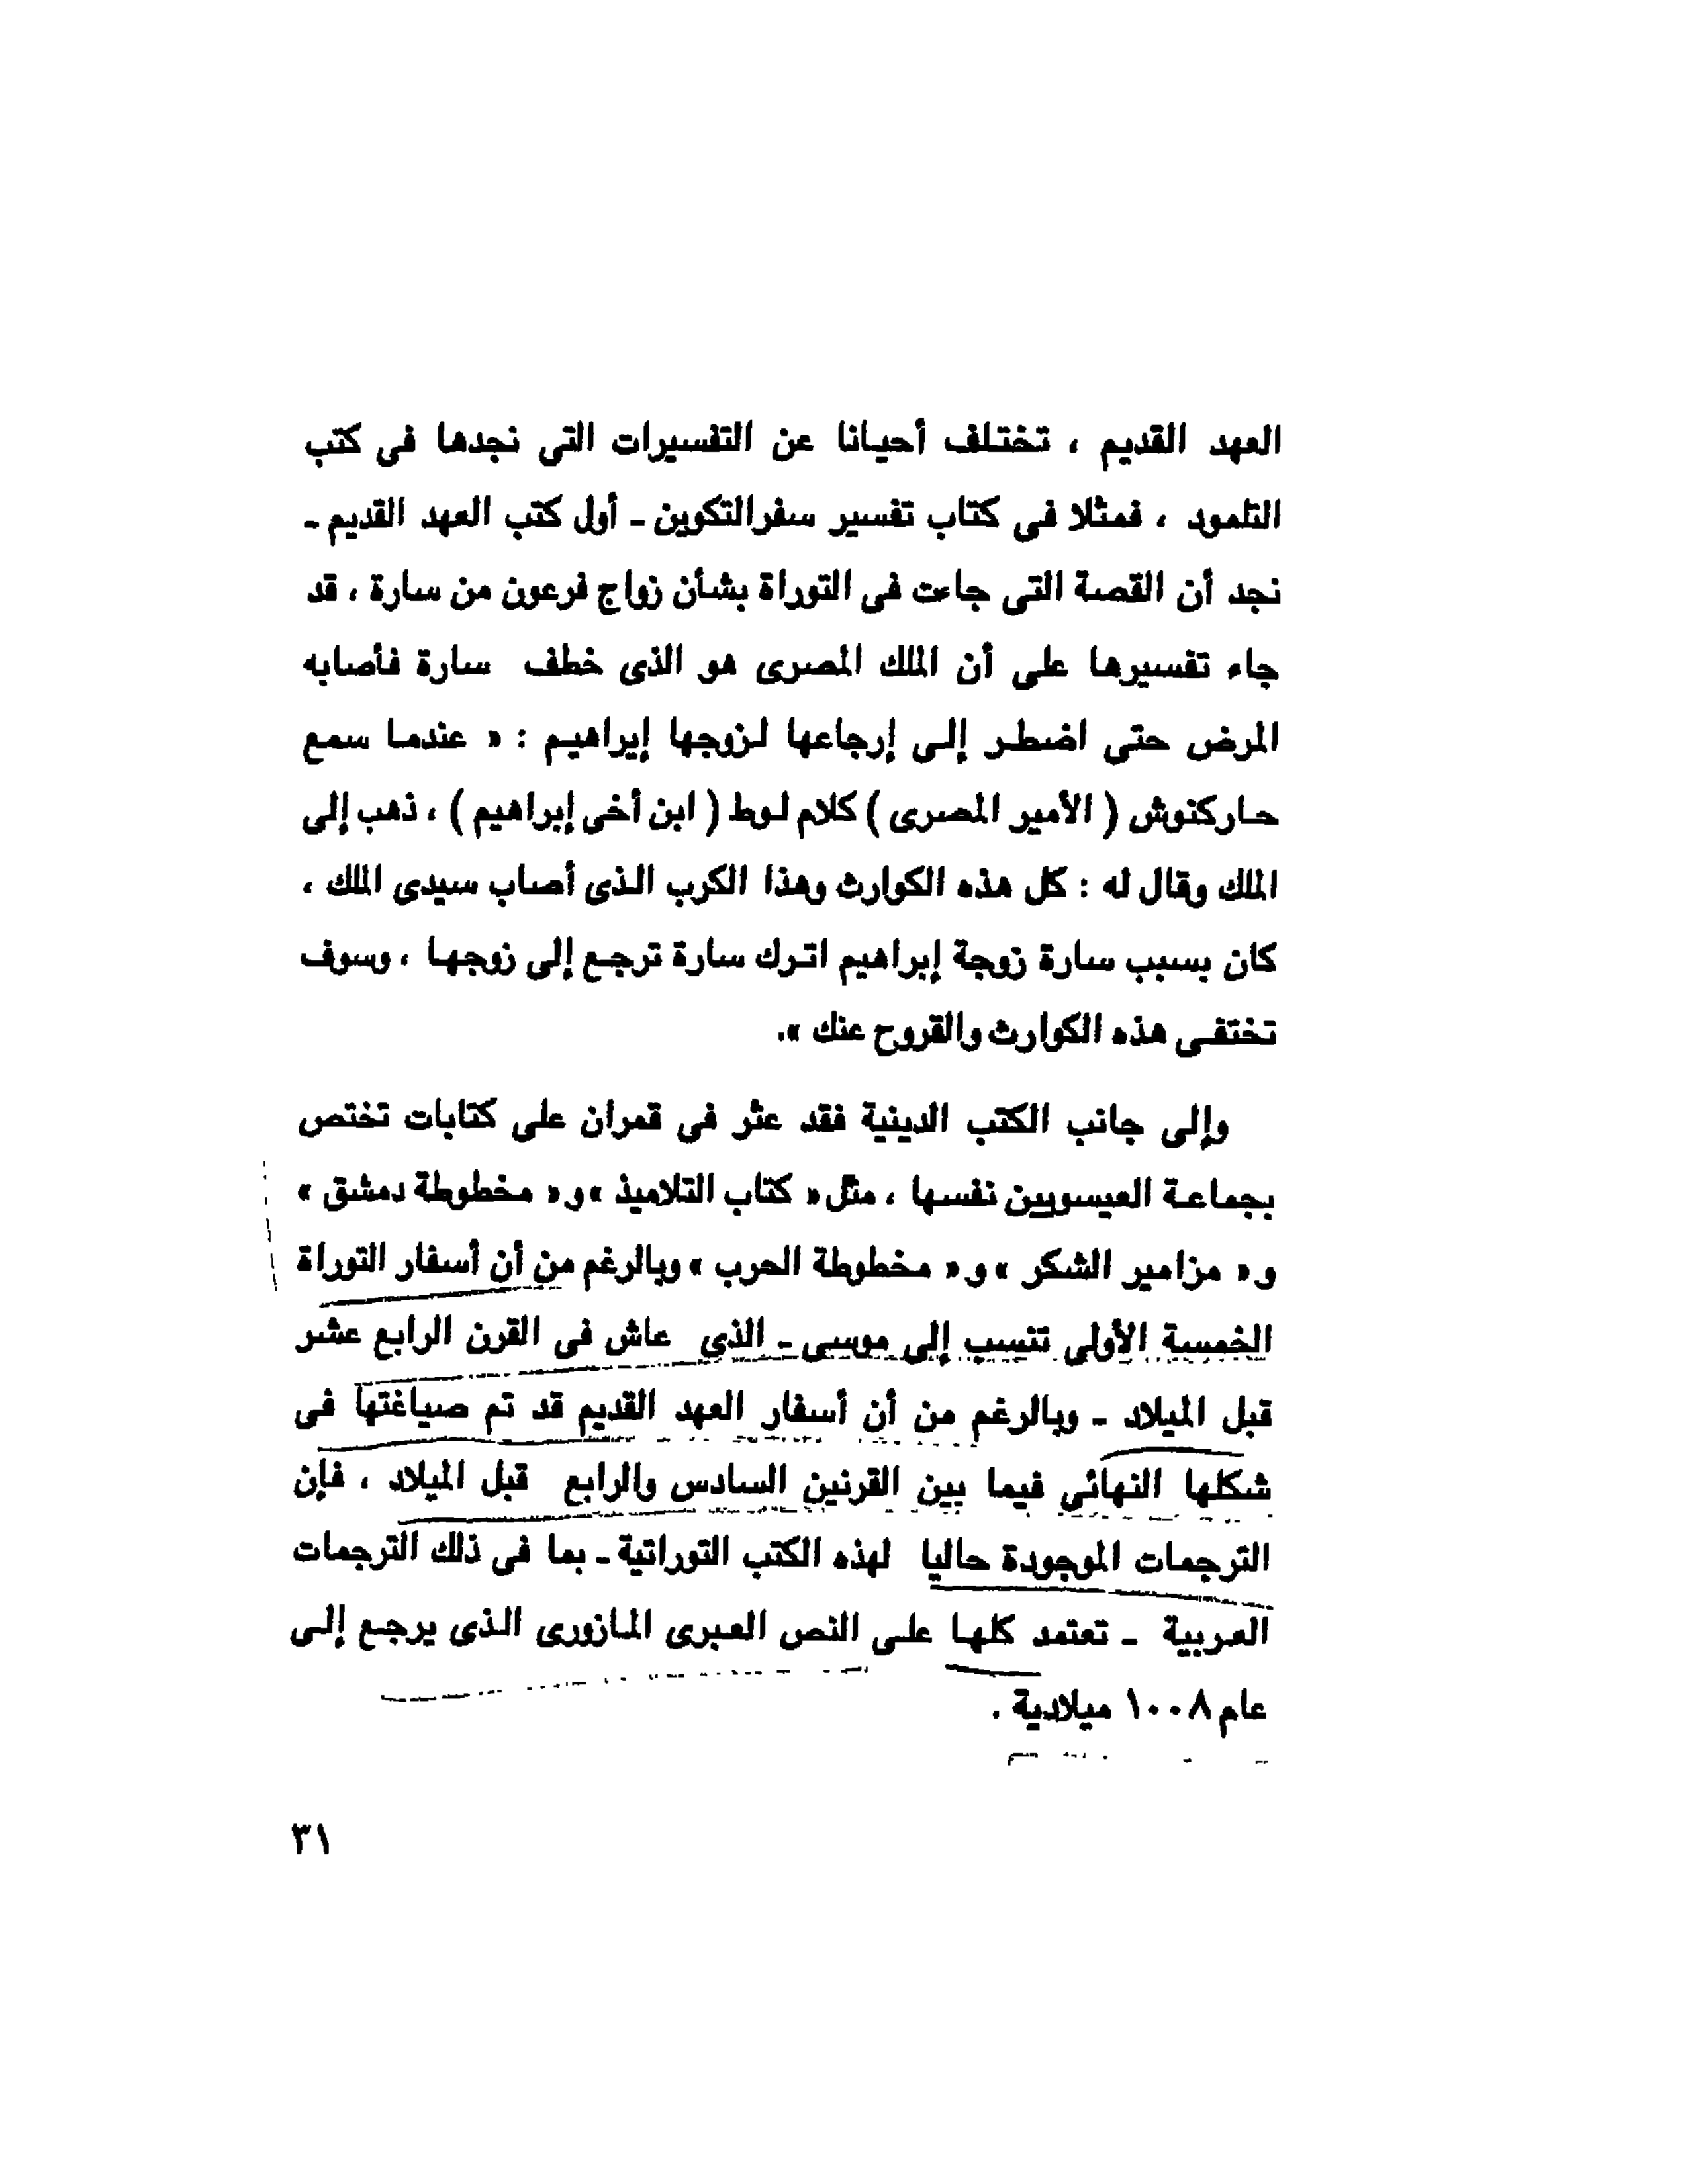 العهد القديم ، تختلف أحيانا عن التفسيرات التى نجدها فى كتب
التلمود ، فمثلا فى كتاب تفسير سفرالتكوين - أول كتب العهد القديم -
نجد أن القصة التى جاءت فى التوراة بشأن زواج فرعون من سارة ، قد
جاء تفسيرها على أن الملك المصرى هو الذى خطف سارة فأصابه
المرض حتى اضطر إلى إرجاعها لزوجها إبراهيم : « عندما سمع
حاركنوش ( الأمير المصرى ) كلام لوط ( ابن أخى إبراهيم ) ، ذهب إلى
الملك وقال له : كل هذه الكوارث وهذا الكرب الذى أصاب سيدى الملك ،
كان بسبب سارة زوجة إبراهيم اترك سارة ترجع إلى زوجها ، وسوف
تختفى هذه الكوارث والقروح عنك ».
وإلى جانب الكتب الدينية فقد عثر فى قمران على كتابات تختص
بجماعة العيسويين نفسها ، مثل « كتاب التلاميذ » و « مخطوطة دمشق »
و « مزامير الشكر » و « مخطوطة الحرب » وبالرغم من أن أسفار التوراة
الخمسة الأولى تنسب إلى موسى - الذى عاش فى القرن الرابع عشر
قبل الميلاد - وبالرغم من أن أسفار العهد القديم قد تم صياغتها فى
شكلها النهائى فيما بين القرنين السادس والرابع قبل الميلاد ، فإن
الترجمات الموجودة حاليا لهذه الكتب التوراتية - بما فى ذلك الترجمات
العربية - تعتمد كلها على النص العبرى المازورى الذى يرجع إلى
عام ١٠٠٨ ميلادية .
٣١